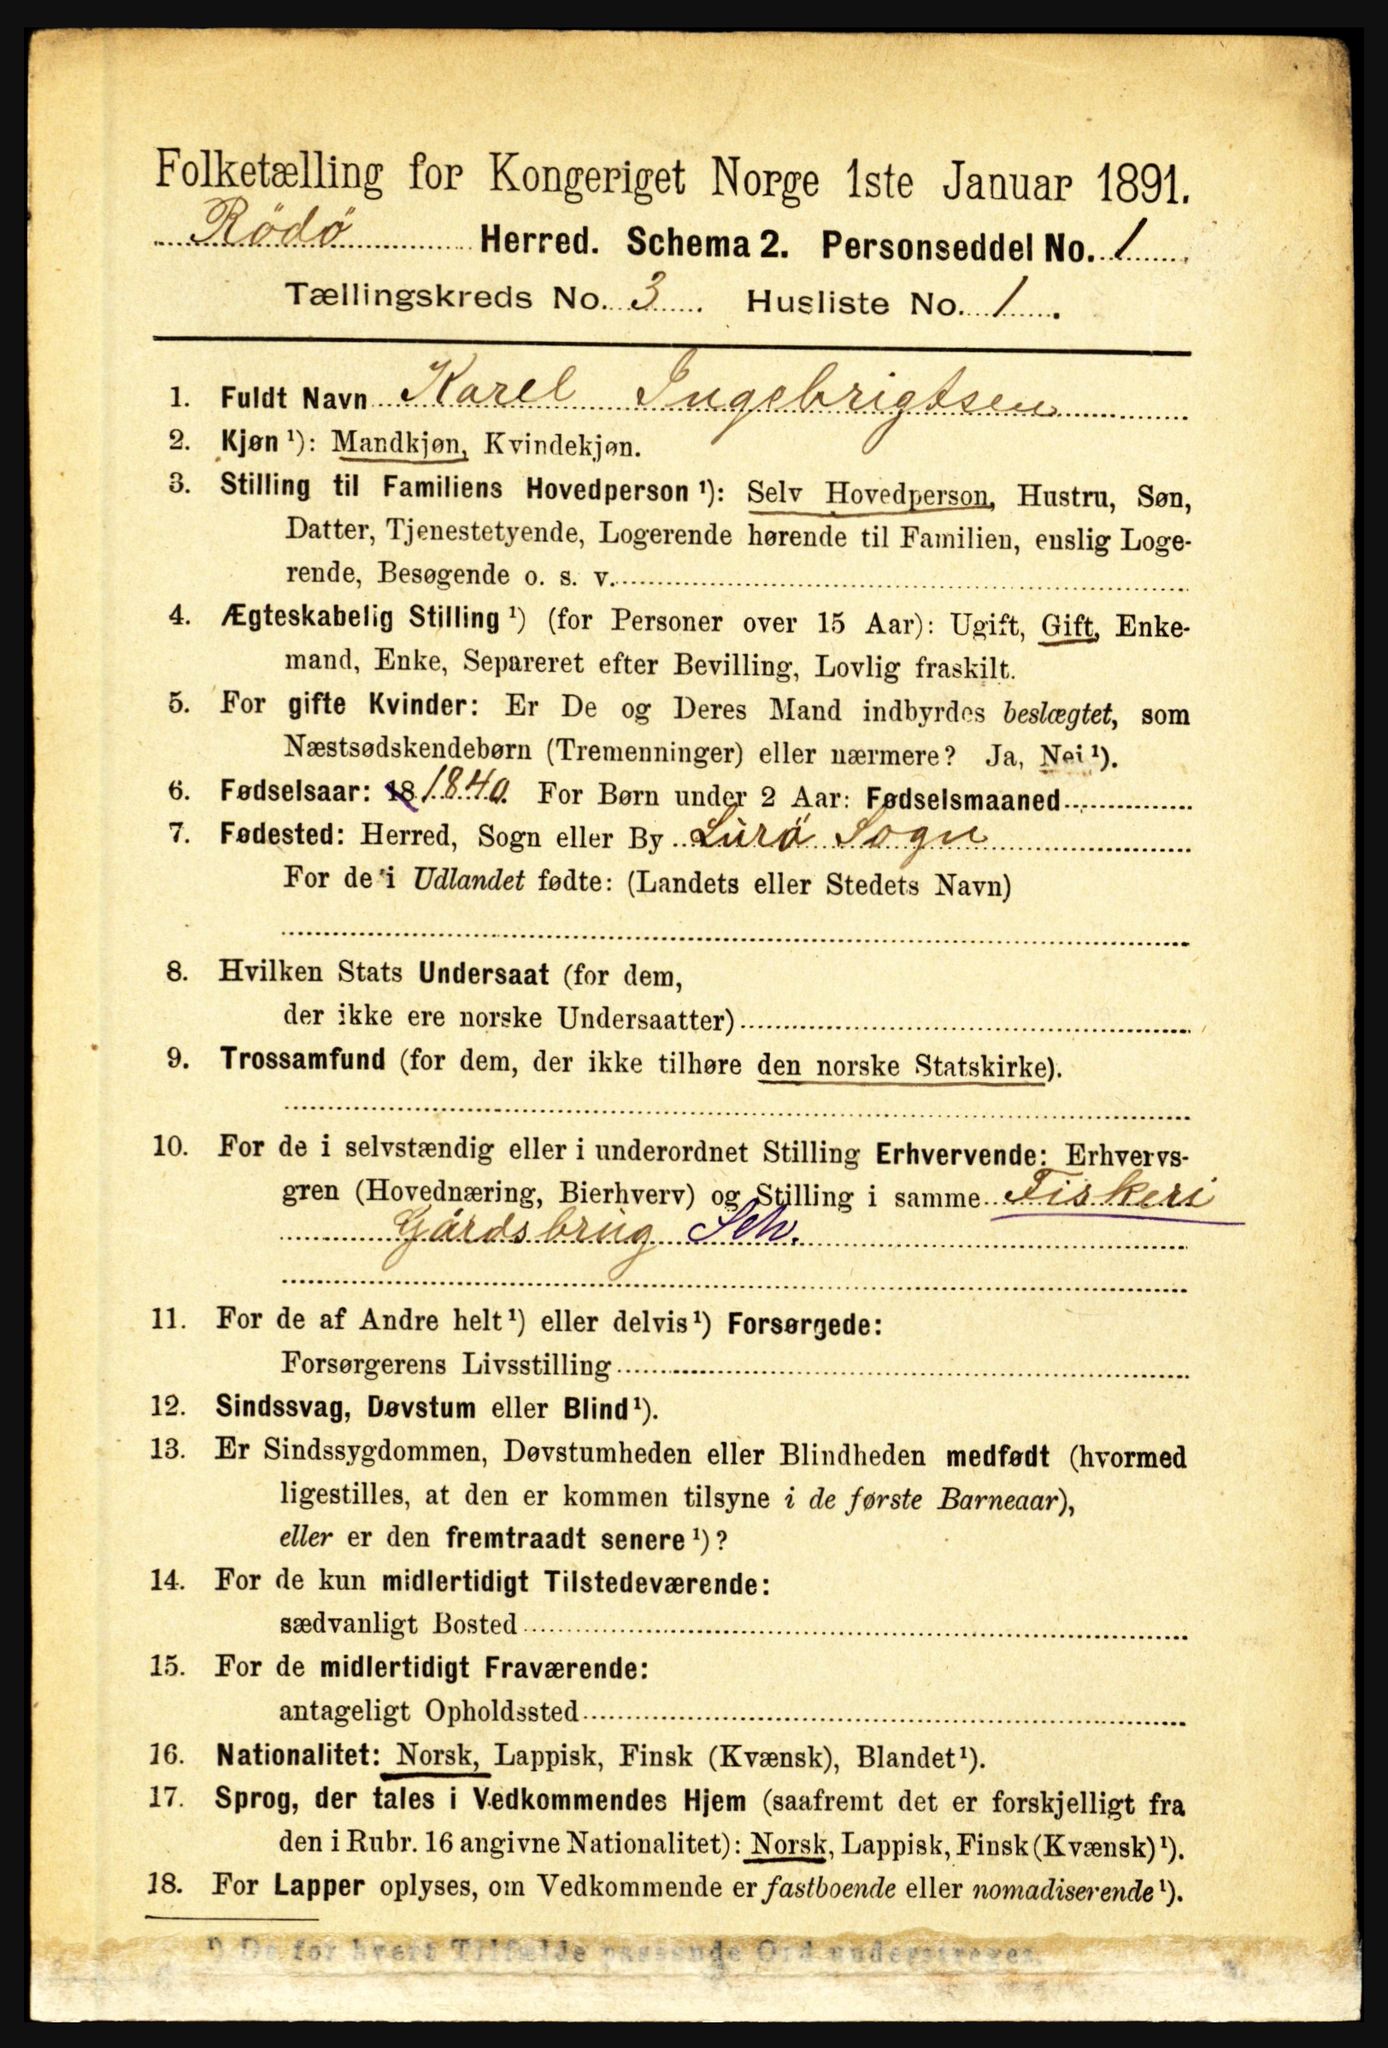 Folketælling for Kongeriget Norge 1ste Januar 1891.
Rödö Herred. Schema 2. Personseddel No. 1
Tællingskreds No. 3 Husliste No. 1.
1. Fuldt Navn Karel Ingebrigtsen
2. Kjøn¹): Mandkjøn, Kvindekjøn.
3. Stilling til Familiens Hovedperson¹): Selv Hovedperson, Hustru, Søn,
Datter, Tjenestetyende, Logerende hørende til Familien, enslig Loge-
rende, Besøgende o. s. v.
4. Ægteskabelig Stilling¹) (for Personer over 15 Aar): Ugift, Gift, Enke-
mand, Enke, Separeret efter Bevilling, Lovlig fraskilt.
5. For gifte Kvinder: Er De og Deres Mand indbyrdes beslægtet, som
Næstsødskendebørn (Tremenninger) eller nærmere? Ja, Nei¹).
6. Fødselsaar: 18 1840. For Børn under 2 Aar: Fødselsmaaned
7. Fødested: Herred, Sogn eller By Lurö Sogn
For de i Udlandet fødte: (Landets eller Stedets Navn)
8. Hvilken Stats Undersaat (for dem,
der ikke ere norske Undersaatter)
9. Trossamfund (for dem, der ikke tilhøre den norske Statskirke).
10. For de i selvstændig eller i underordnet Stilling Erhvervende: Erhvervs-
gren (Hovednæring, Bierhverv) og Stilling i samme Fiskeri
Gårdsbrug Selv.
11. For de af Andre helt¹) eller delvis¹) Forsørgede:
Forsørgerens Livsstilling
12. Sindssvag, Døvstum eller Blind¹).
13. Er Sindssygdommen, Døvstumheden eller Blindheden medfødt (hvormed
ligestilles, at den er kommen tilsyne i de første Barneaar),
eller er den fremtraadt senere¹)?
14. For de kun midlertidigt Tilstedeværende:
sædvanligt Bosted
15. For de midlertidigt Fraværende:
antageligt Opholdssted
16. Nationalitet: Norsk, Lappisk, Finsk (Kvænsk), Blandet¹).
17. Sprog, der tales i Vedkommendes Hjem (saafremt det er forskjelligt fra
den i Rubr. 16 angivne Nationalitet): Norsk, Lappisk, Finsk (Kvænsk)¹).
18. For Lapper oplyses, om Vedkommende er fastboende eller nomadiserende¹).
¹) De for hvert Tilfælde passende Ord understreges.